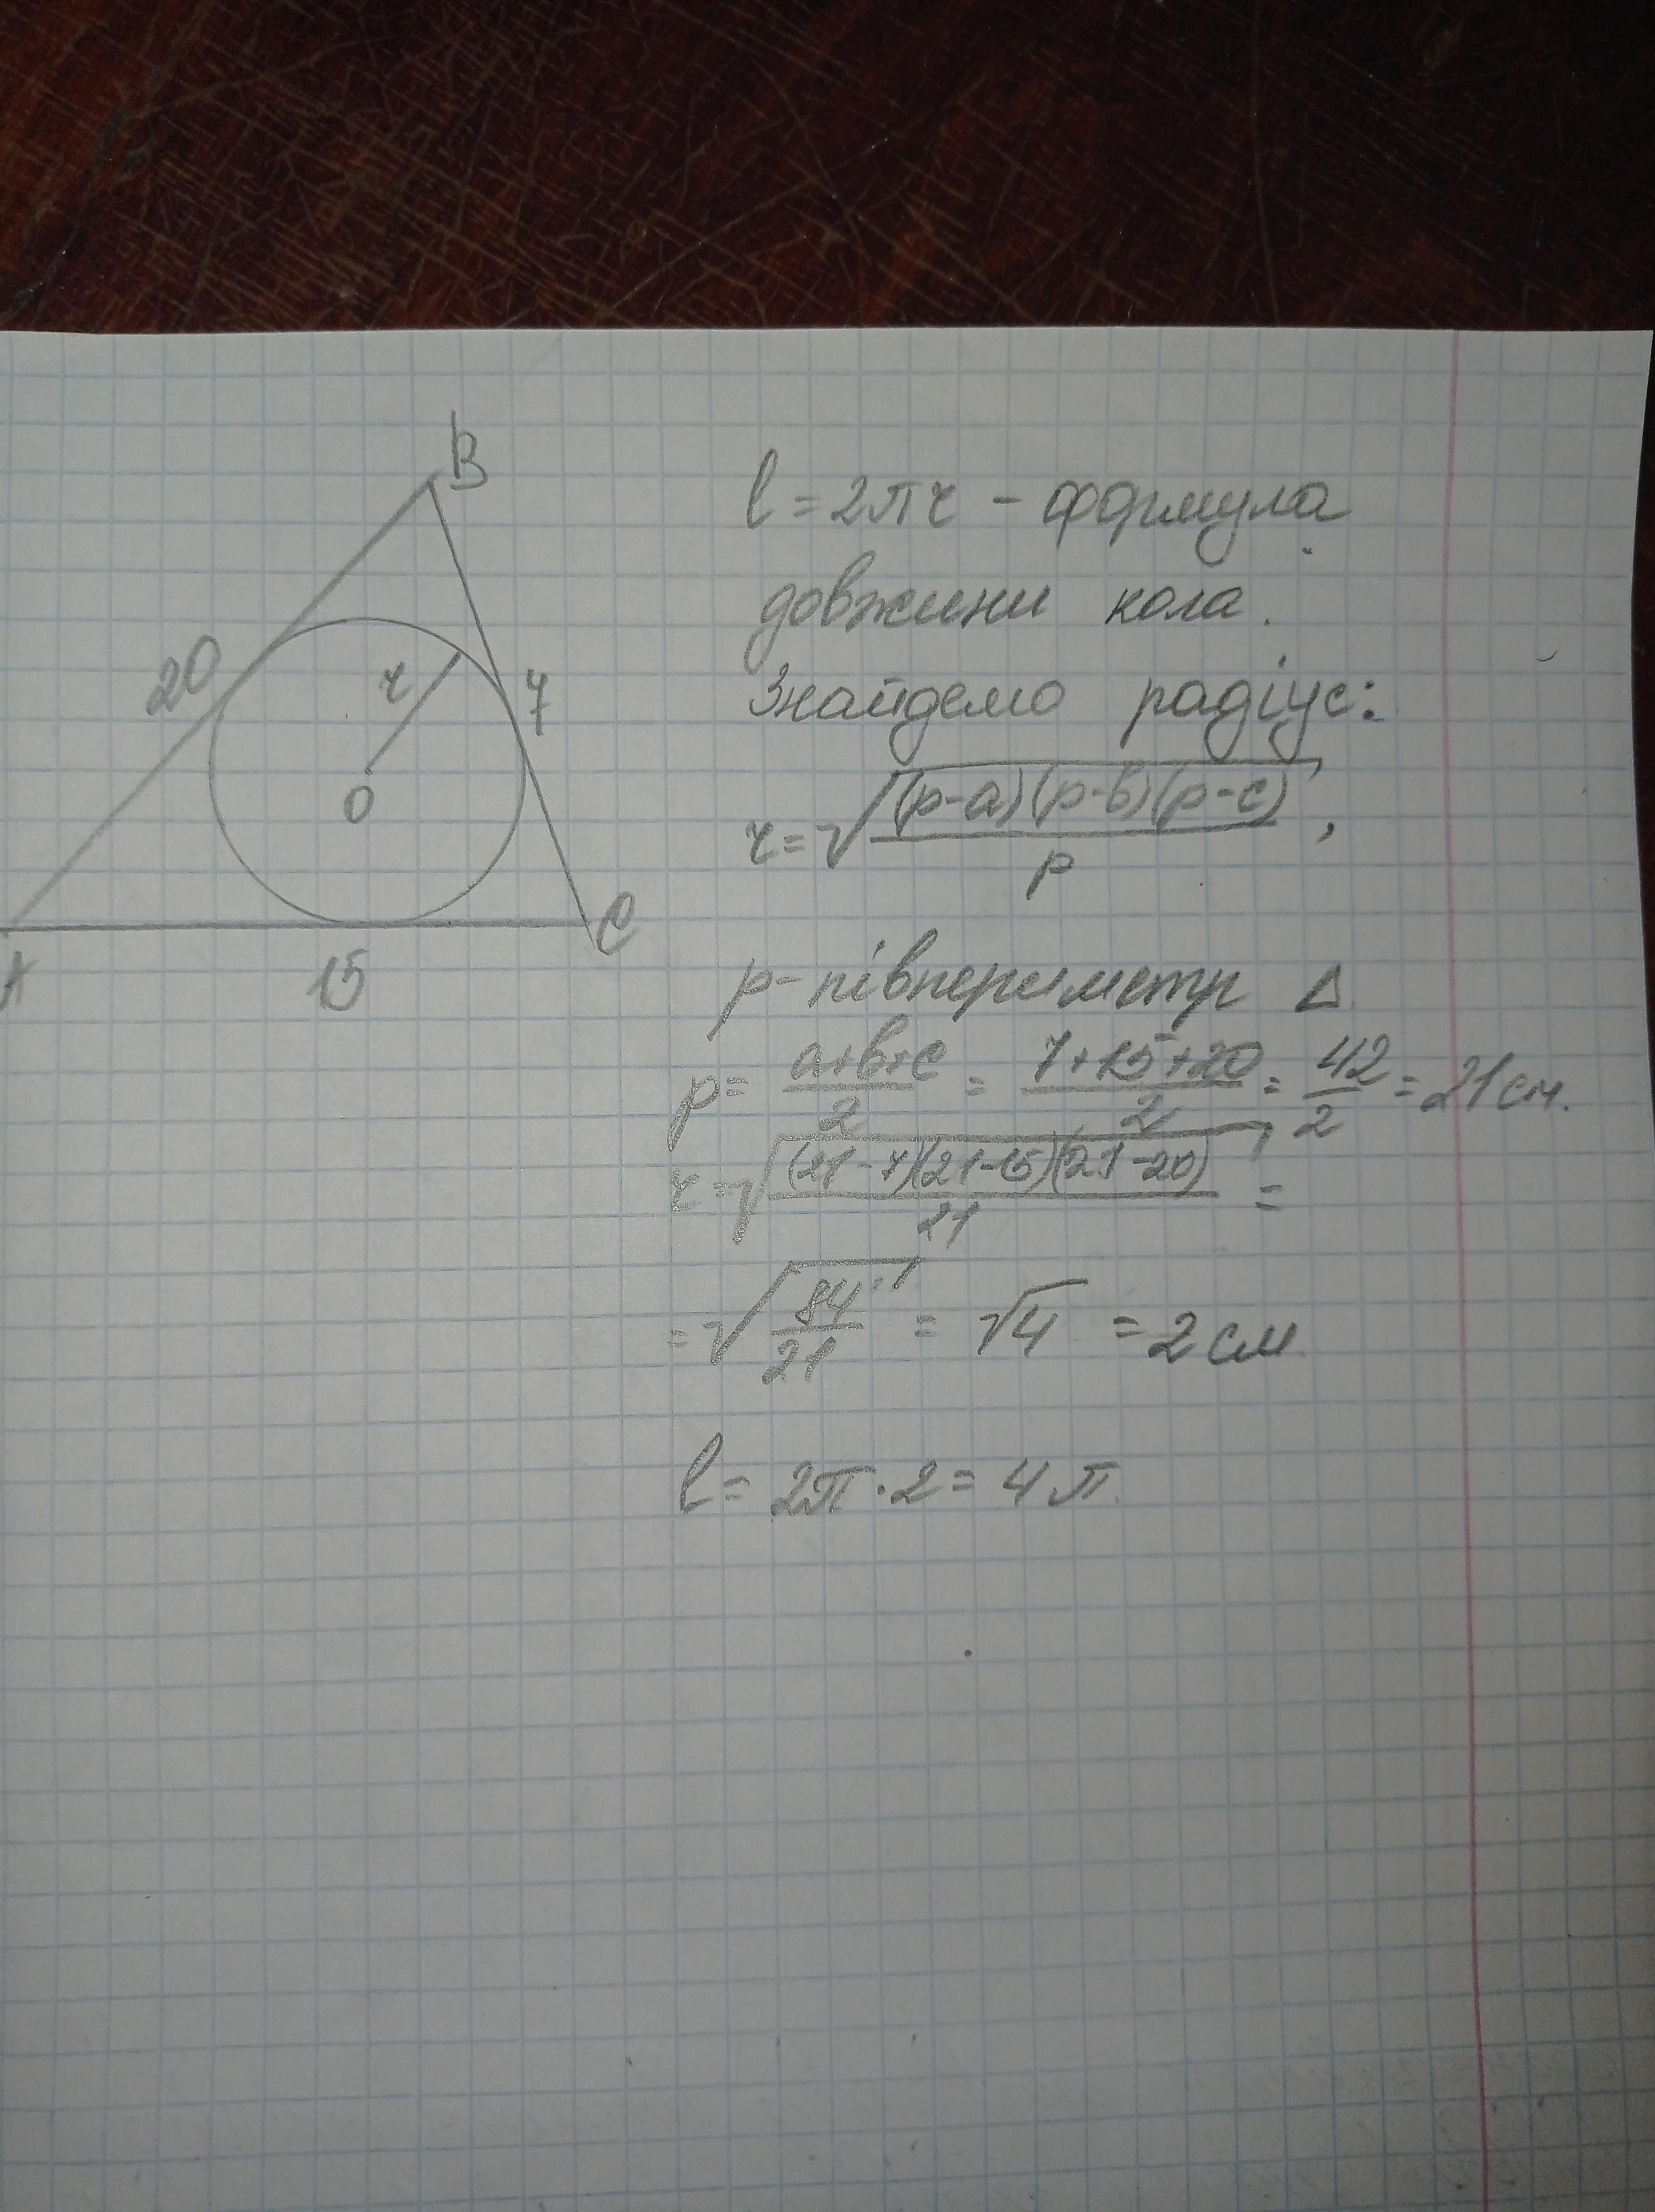 B
20
r
7
O
A
15
C
l = 2πr - формула
довжини кола.
Знайдемо радіус:
r = √((p-a)(p-b)(p-c)/p),
p - півпериметр Δ
p = (a+b+c)/2 = (7+15+20)/2 = 42/2 = 21 см.
r = √((21-7)(21-15)(21-20)/21) =
= √(84/21) = √4 = 2 см
l = 2π·2 = 4π